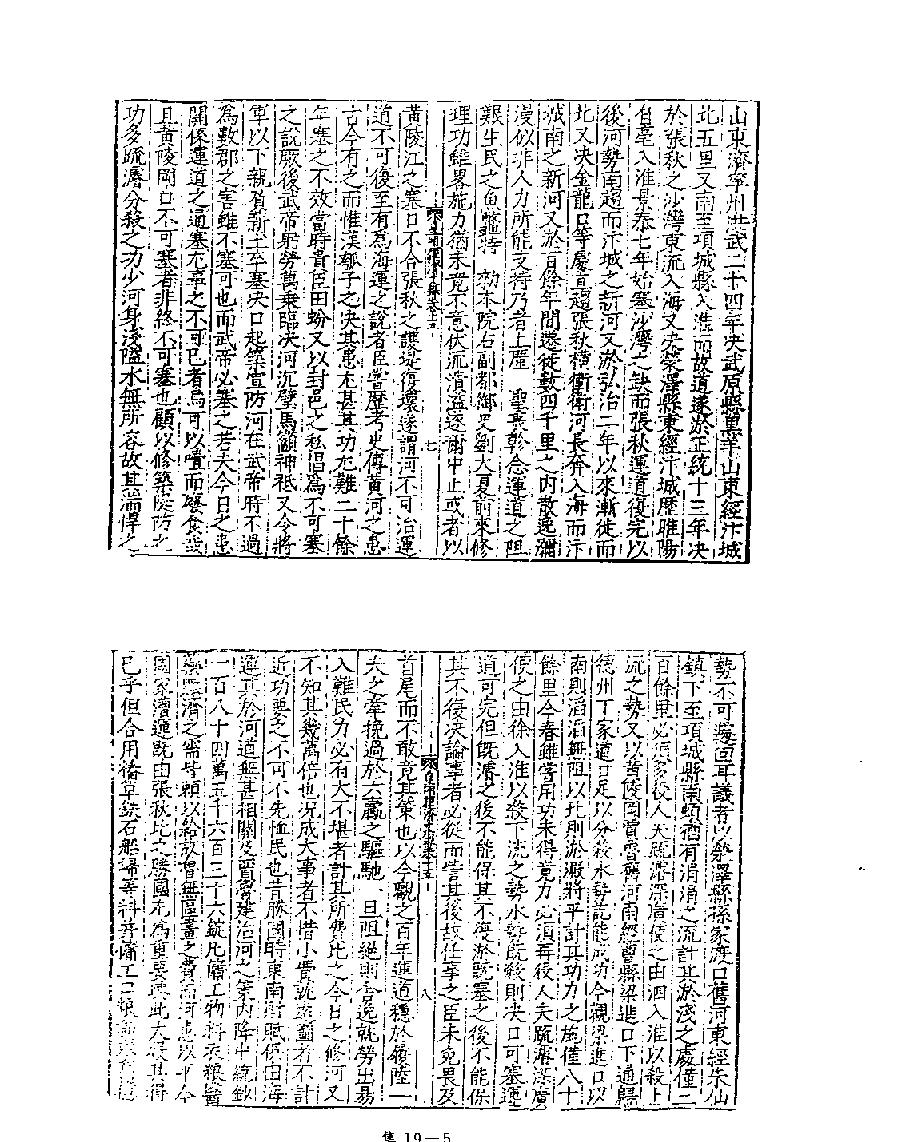 山東濟寧州洪武二十四年决武原縣黑羊山東經汴城
北五里又南至項城縣入淮而故道遂於正統十三年决
於張秋之沙灣東流入海又决滎澤縣東經汴城歷睢陽
自亳入淮景泰七年始塞沙灣之缺而張秋運道復完以
後河勢南趨而汴城之新河又淤弘治二年以來漸徙而
北又决金龍口等處直趨張秋橫衝衛河長奔入海而汴
城南之新河又淤百餘年間遷徙數四千里之內散逸瀰
漫似非人力所能支持乃者上廑 聖慈軫念運道之阻
艱生民之魚鱉特 勑本院右副都御史劉大夏前來修
理功雖畧施力猶未竟不意伏流潰溢遂爾中止或者以
七
黃陵江之塞口不合張秋之護堤復壞遂謂河不可治運
道不可復至有為海運之說者臣嘗歷考史傳黃河之患
古今有之而惟漢瓠子之决其患尤甚其功尤難二十餘
年塞之不效當時貴臣田蚡又以封邑之私倡為不可塞
之說厥後武帝躬勞萬乘臨决河沉璧馬籲神祇又令將
軍以下親負薪土卒塞决口起築宣防河在武帝時不過
為數郡之害雖不塞可也而武帝必塞之若夫今日之患
關係運道之通塞尤事之不可已者烏可以噎而廢食哉
且黃陵岡口不可塞者非終不可塞也顧以修築隄防之
功多疏濬分殺之力少河身淺隘水無所容故其湍悍之
勢不可遽回耳議者以滎澤縣孫家渡口舊河東經朱仙
鎮下至項城縣南頓猶有涓涓之流計其淤淺之處僅二
百餘里必須多役人夫疏濬深廣使之由泗入淮以殺上
流之勢又以黃陵岡賈魯舊河南經曹縣梁進口下通歸
德州丁家道口足以分殺水勢訖能成功今觀梁進口以
南則滔滔無阻以北則淤澱將平計其功力之施僅八十
餘里今春雖嘗用功未得竟力必須再役人夫疏濬深廣
使之由徐入淮以殺下流之勢水勢既殺則决口可塞運
道可完但既濬之後不能保其不復淤既塞之後不能保
其不復决論事者必從而訾其後故任事之臣未免畏及
八
首尾而不敢竟其策也以今觀之百年運道穩於履陸一
夫之牽挽過於六驘之驅馳一旦阻絕則舍逸就勞出易
入難民力必有大不堪者計其所費比之今日之修河又
不知其幾萬倍也况成大事者不惜小費就遠圖者不計
近功要之不可不先恤民也昔勝國時東南財賦俱由海
運其於河道無甚相關及賈魯建治河之策內降中統鈔
一百八十四萬五千六百三十六錠凡僱工物料衣糧醫
藥賑濟之需皆賴以給故曾無匱盡之費而河患以平今
國家漕運既由張秋比之勝國尤為重要興此大役其得
已乎但合用樁草鉄石船埽等料并僱工口糧
集 19—5